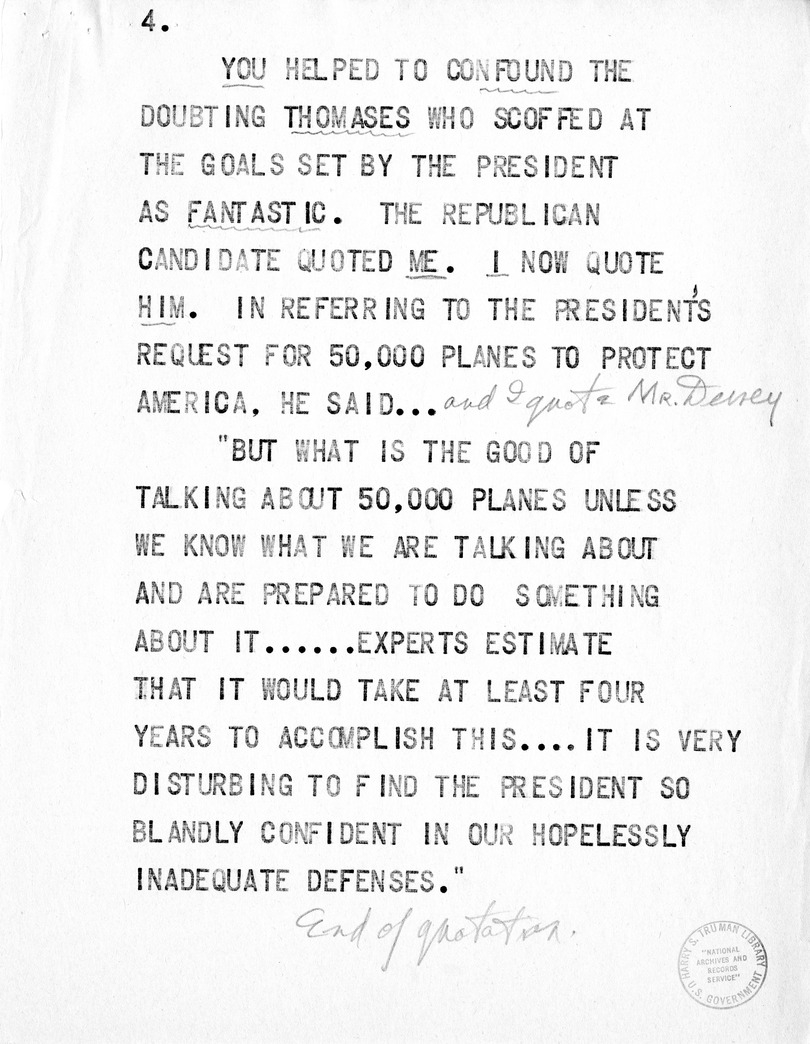 4.
YOU HELPED TO CONFOUND THE
DOUBTING THOMASES WHO SCOFFED AT
THE GOALS SET BY THE PRESIDENT
AS FANTASTIC. THE REPUBLICAN
CANDIDATE QUOTED ME. I NOW QUOTE
HIM. IN REFERRING TO THE PRESIDENT'S
REQUEST FOR 50,000 PLANES TO PROTECT
AMERICA, HE SAID... and I quote Mr. Dewey
"BUT WHAT IS THE GOOD OF
TALKING ABOUT 50,000 PLANES UNLESS
WE KNOW WHAT WE ARE TALKING ABOUT
AND ARE PREPARED TO DO SOMETHING
ABOUT IT......EXPERTS ESTIMATE
THAT IT WOULD TAKE AT LEAST FOUR
YEARS TO ACCOMPLISH THIS....IT IS VERY
DISTURBING TO FIND THE PRESIDENT SO
BLANDLY CONFIDENT IN OUR HOPELESSLY
INADEQUATE DEFENSES."
End of quotation.
HARRY S. TRUMAN LIBRARY
"NATIONAL
ARCHIVES AND
RECORDS
SERVICE"
U.S. GOVERNMENT